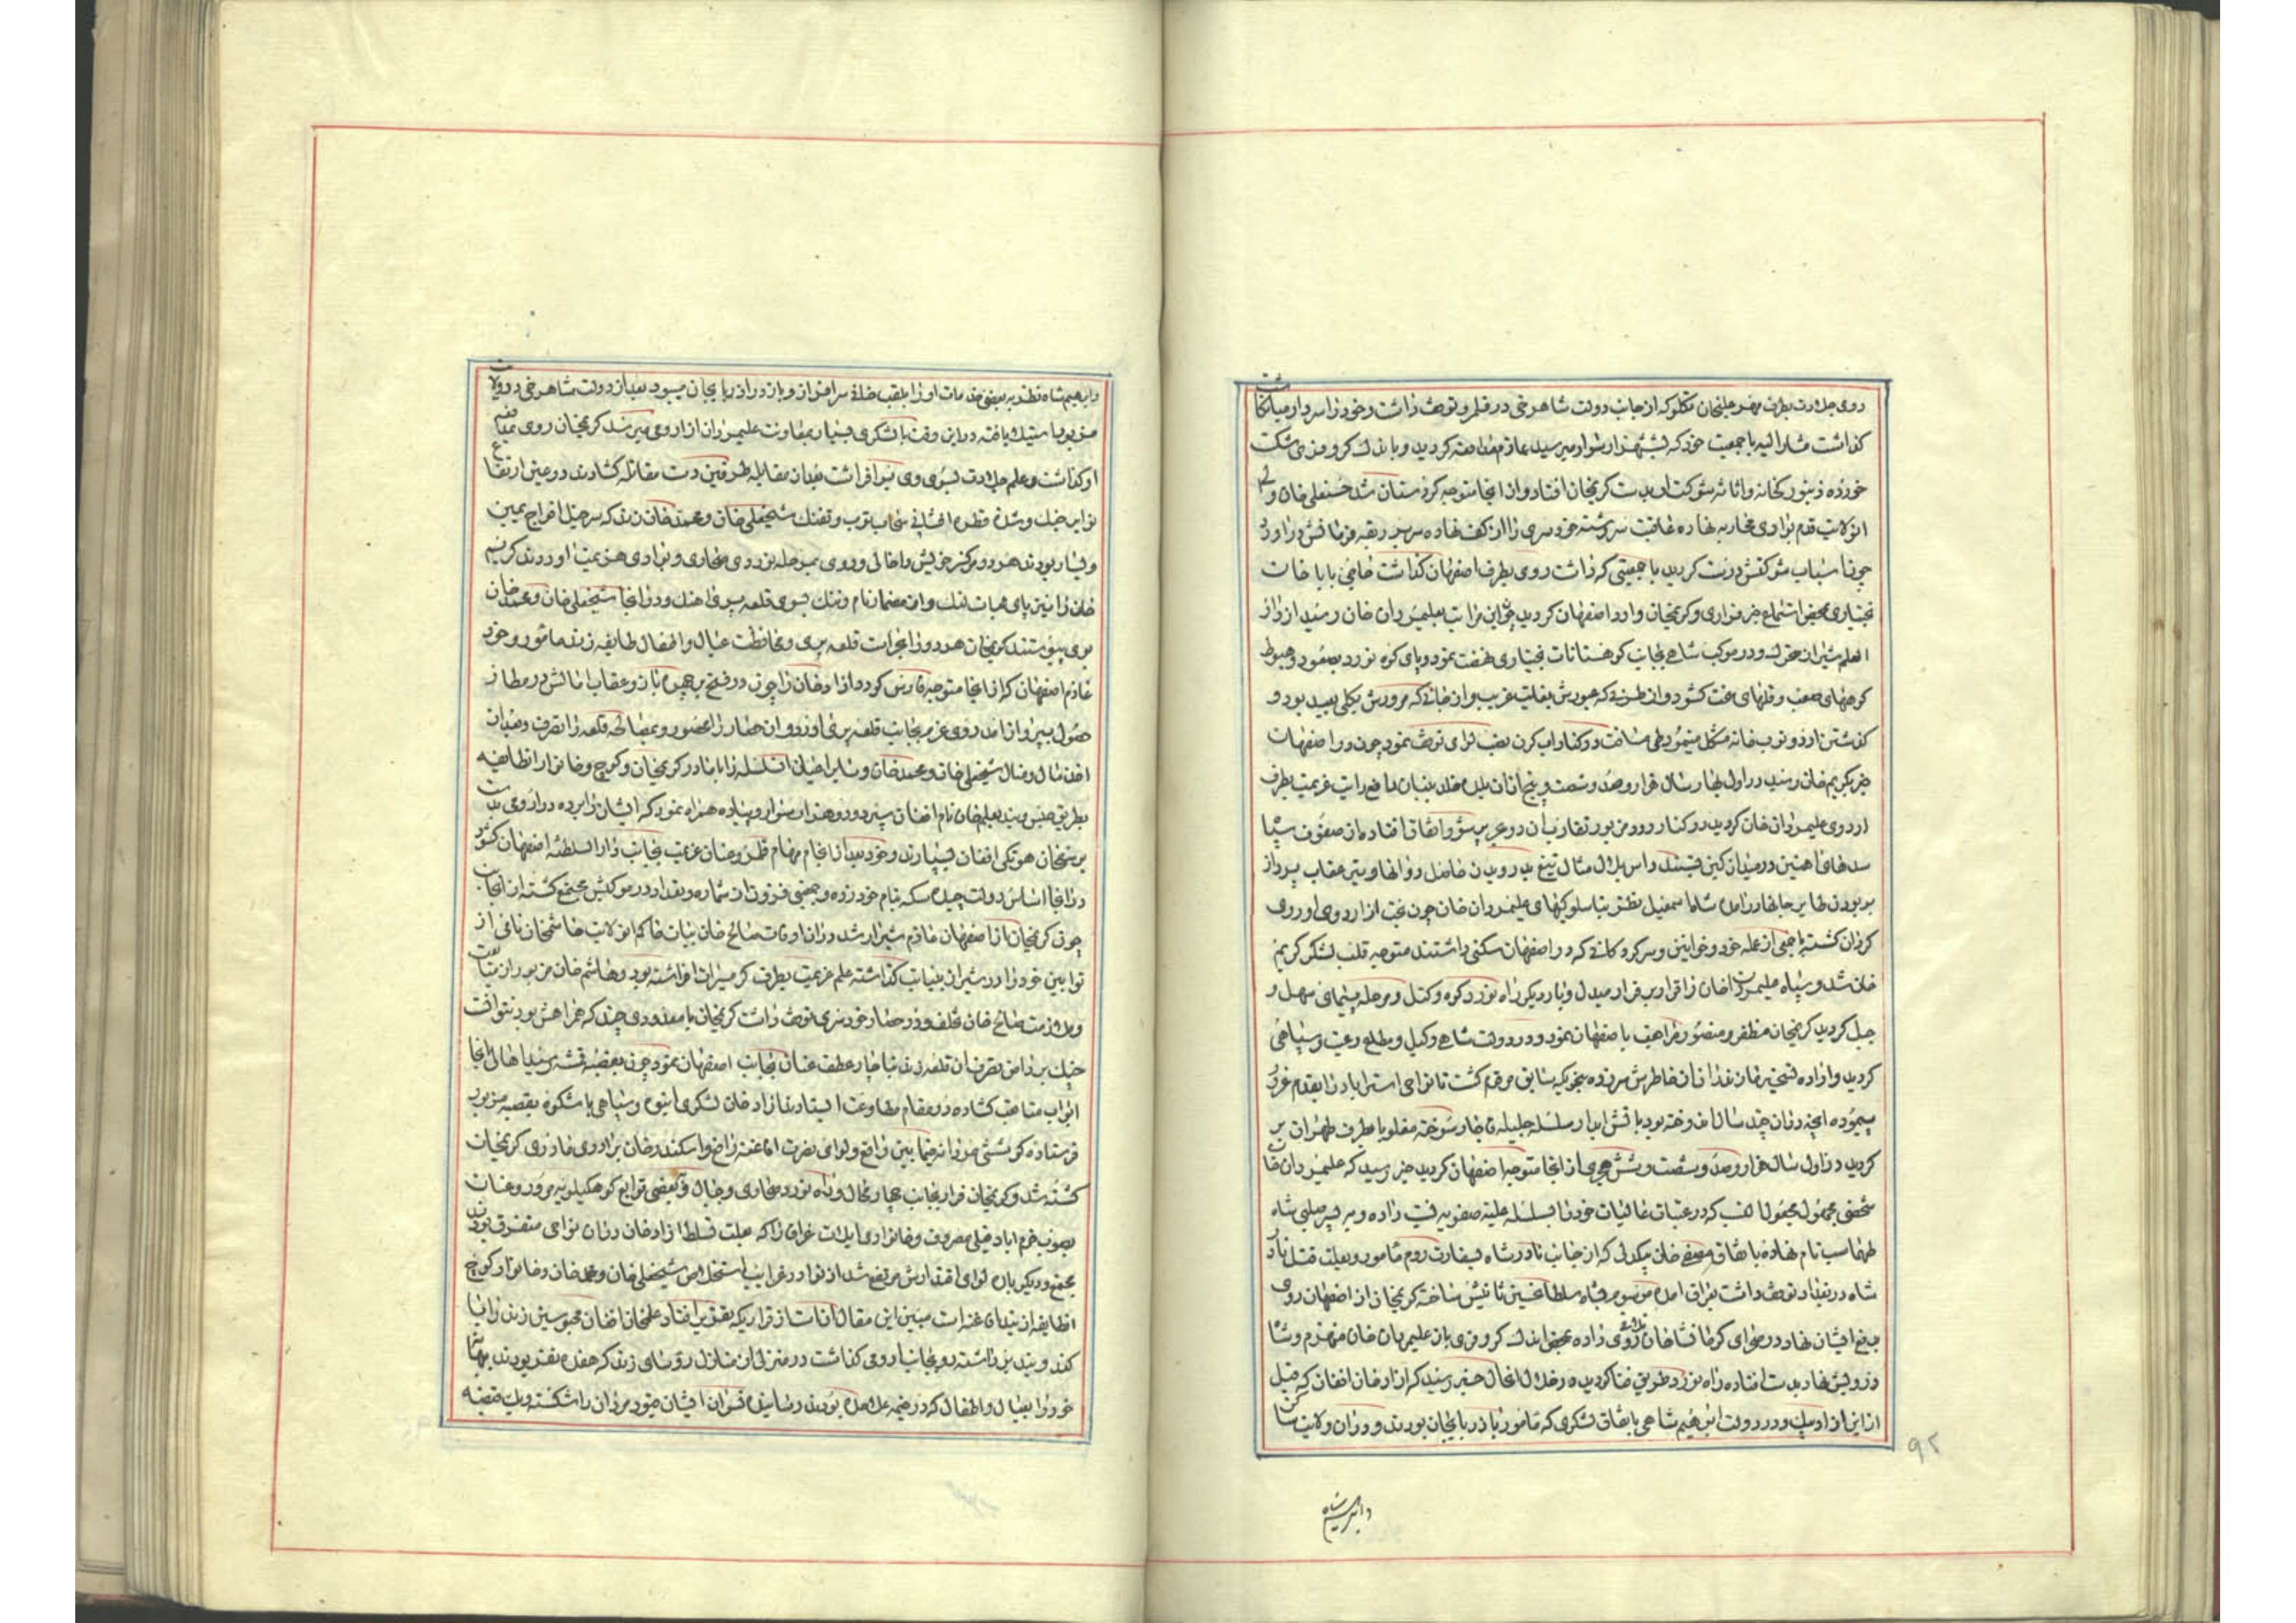 روی جلادت بطرف مهر علیخان تکلو که از جانب دولت شاهرخی در قلمرو توقف داشت و خود را سردار میانکاشت
کذاشت مشارالیه با جمعیت خود که بشهزار سوار میرسید عازم مدافعه کردید و باندک کروفری شکست
خورده زنبورکخانه و اثاثه شوکت او بدست کریمخان افتاد و از انجا متوجه کردستان شد حسنعلی خان والی
ان ولایت قدم بوادی محاربه نهاده عاقبت سررشته خودسری را از کف نهاده سر بربقه فرمانش دراورد
چون اسباب شوکتش درست کردید با جمعیتی که داشت روی بطرف اصفهان کذاشت بابا خان
بختیاری بمحض استماع خبر فراری و کریمخان وارد اصفهان کردید چون این مراتب بعلیمردان خان رسید از دار
العلم شیراز حرکت و در موکب شاهی بجانب کوهستانات بختیاری نهضت نمود و پای کوه نورد بصعود و هبوط
کوههای صعب و قلهای سخت کشود و از طرفی که عبورش بغایت غریب و از جائی که مرورش بکلی بعید بود و
کذشتن اردو و توبخانه مشکل مینمود طی مسافت و در کنار اب کرن نصب لوای توقف نمود چون در اصفهان
خبر بکریم خان رسید در اول بهار سال هزار و صد و شصت و پنج از ان بلده خلد بنیان رافع رایت عزیمت بطرف
اردوی علیمردان خان کردید در کنار رود مزبور تقارب ان دو بحر پر شور اتفاق افتاد از صفوف سپاه
سدهای اهنین در میدان کین بستند و اس هلال مثال تیغ بدرویدن حاصل روانها و تیر عقاب پرواز
بربودن طایر جانها درامد شاه اسمعیل نظر بناسلوکیهای علیمردان خان چون بخت از اردوی او روی
کردان کشته با جمعی از عمله خود و خوانین و سرکردکانی که در اصفهان سکنی داشتند متوجه قلب لشکر کریم
خان شد و سپاه علیمردان خان را قرار بفرار مبدل و بار دیکر راه نورد کوه و کتل و مرحله پیمای سهل و
جبل کردید کریمخان مظفر و منصور مراجعت باصفهان نمود و در دولت شاهی وکیل و مطاع رعیت و سپاهی
کردید و اراده تسخیر مازندران از خاطرش سر زده بنحویکه سابق مرقوم کشت تا نواحی استراباد را بقدم غرور
پیموده انچه در ان چند سال اندوخته بود باتش ادبار سلسله جلیله قاجار سوخته مغلوبا بطرف طهران بر
کردید در اول سال هزار و صد و شصت و شش هجری از انجا متوجه اصفهان کردید خبر رسید که علیمردان خان
شخصی مجهول مجعول النسب که در عتبات عالیات خود را بسلسله علیه صفویه نسبت داده و به پسر صلبی شاه
طهماسب نام نهاده باتفاق مصطفی خان بیکدلی که از جانب نادرشاه بسفارت روم مامور و بعلت قتل نادر
شاه در بغداد توقف داشت بعراق امده موسوم بشاه سلطانحسین ثانیش ساخته کریمخان از اصفهان روی
بدفع ایشان نهاد در صحرای کرمانشاهان تلاقی روی داده بمحض اندک کروفری باز علیمردان خان منهزم و شاه
درویش نهاد بدست افتاده راه نورد طریق فنا کردید در خلال انحال خبر رسید که ازاد خان افغان که قبل
از این ازاد بیک و در دولت ابراهیم شاهی باتفاق لشکری که مامور باذربایجان بودند و در ان ولایت ساکن
وابراهیم شاه
۹۲
وابراهیم شاه نظر به بعضی خدمات او را بلقب خانی سرافراز و باز در اذربایجان میبود بعد از دولت شاهرخی در ولایت
مزبور استیلا یافته در این وقت با لشکری بسیار بمعاونت علیمردان از ارومی میرسد کریمخان روی بمدافعه
او کذاشت و علم جلادت بسوی وی برافراشت بعد از مقابله طرفین دست مقاتله کشادند در عین ارتفاع
نوایر جنک و شدت قطره افشانی سحاب توپ و تفنک شیخعلی خان و محمد خان زند که سرخیل افواج یمین
و یسار بودند هر دو مرکز خویش را خالی و روی بمرحله نوردی صحاری و بوادی هزیمت اوردند کریم
خان را نیز پای ثبات لنک و از مضمار نام و ننک بسوی قلعه پری اهنک و در انجا شیخعلی خان و محمد خان
بوی پیوستند کریمخان هر دو را بحراست قلعه پری و محافظت عیال و اطفال طایفه زند مامور و خود
عازم اصفهان که از انجا متوجه فارس کردد ازاد خان را چون در فتح پرچم باز و عقاب امالش در مطار
حصول بپرواز امد روی عزم بجانب قلعه پری اورد و ان حصار را محصور و بمصالحه قلعه را تصرف و بعد از
اخذ مال و منال شیخعلی خان و محمد خان و سایر اعیان انسلسله را با مادر کریمخان و کوچ و خانوار انطایفه
بطریق حبس و بند بعلیخان نام افغان سپرد و دو هزار سوار و پیاده همراه نمود که ایشان را برده در ارومی بدست
یوسفخان هوتکی افغان بسپارند و خود بعد از انجام مهام قلمرو عنان عزیمت بجانب دارالسلطنه اصفهان کشود
در انجا اساس دولت چیده سکه بنام خود زده و جمعی فزون از شماره و تعداد در موکبش مجتمع کشته از انجانب
چون کریمخان از اصفهان عازم شیراز شد در ان اوقات صالح خان بیات حاکم ان ولایت هاشمخان نامی از
توابین خود را در شیراز بنیابت کذاشته علم عزیمت بطرف کرمسیرات افراشته بود و هاشم خان مزبور از متابعت
و ملازمت صالح خان تخلف و در حصار خودسری توقف داشت کریمخان با معدودی چند که همراهش بود نتوانست
چنک بر دامن تصرف ان قلعه زند بناچار عطف عنان بجانب اصفهان نمود چون بقصبه قمشه رسید اهالی انجا
ابواب متابعت کشاده در مقام مطاوعت ایستادند ازاد خان لشکری انبوه و سپاهی باشکوه بقصبه مزبور
فرستاده کوششی مردانه فیمابین واقع و لوای نصرت افاغنه رافع و اسکندر خان برادر مادری کریمخان
کشته شد و کریمخان فرار بجانب چهارمحال و راه نورد صحاری و جبال و بعضی توابع کوهکیلویه مرور و عنان
بصوب خرم اباد فیلی مصروف و خانواری ایلات عراق را که بعلت تسلط ازاد خان در ان نواحی متفرق بودند
مجتمع و دیکر باره لوای اقتدارش مرتفع شد از نوادر غرایب استخلاص شیخعلی خان و محمد خان و خانوار کوچ
انطایفه از بند افاغنه است مبین این مقال انست از قراریکه بتقریر افتاد علیخان افغان محبوسین زند را با
کند و بند برداشته رو بجانب ارومی کذاشت در منزلی از منازل رؤسای زند که هفده نفر بودند بهانه
خود را بعیال و اطفال که در خیمه علیحده بودند رسانیده نسوان ایشان قیود مردان را شکسته و یک قبضه